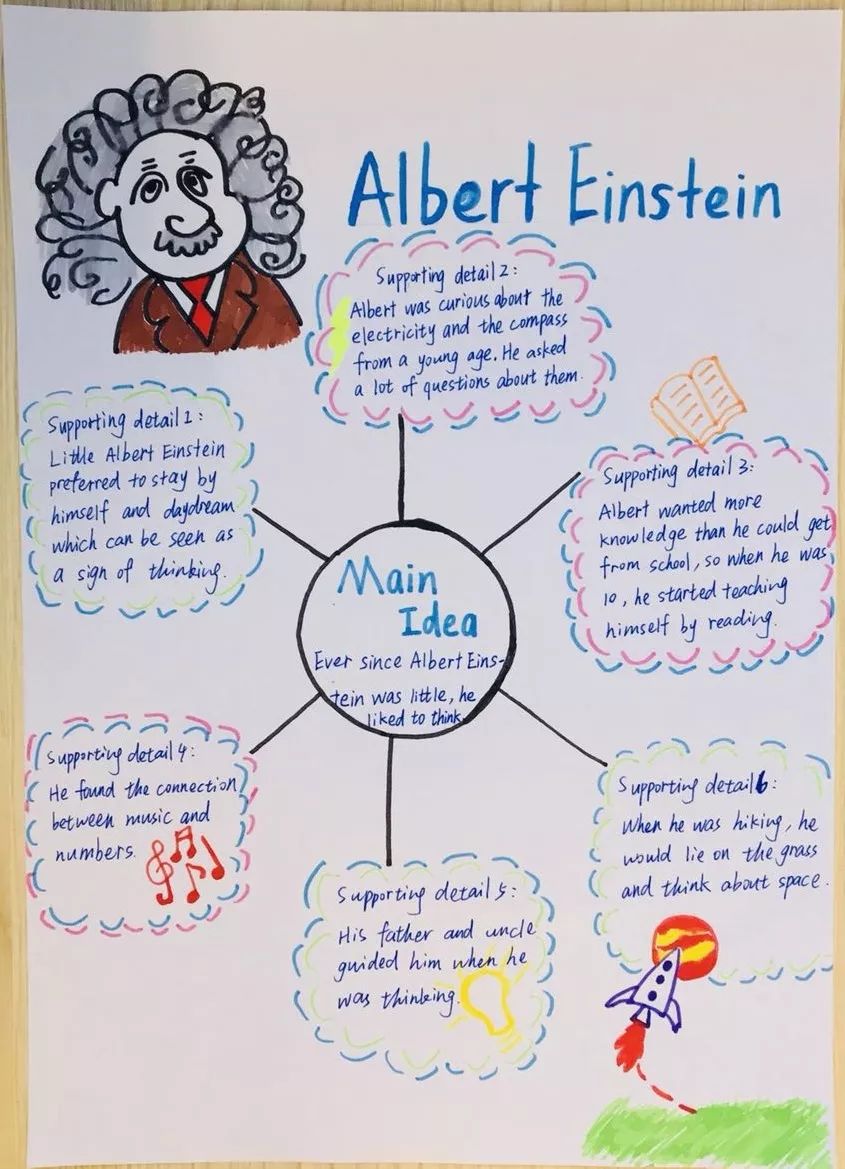 Albert Einstein
Supporting detail 2:
Albert was curious about the
electricity and the compass
from a young age. He asked
a lot of questions about them.
Supporting detail 1:
Little Albert Einstein
preferred to stay by
himself and daydream
which can be seen as
a sign of thinking.
Supporting detail 3:
Albert wanted more
knowledge than he could get
from school, so when he was
10, he started teaching
himself by reading.
Main
Idea
Ever since Albert Eins-
tein was little, he
liked to think.
Supporting detail 4:
He found the connection
between music and
numbers.
Supporting detail 5:
His father and uncle
guided him when he
was thinking.
Supporting detail 6:
When he was hiking, he
would lie on the grass
and think about space.